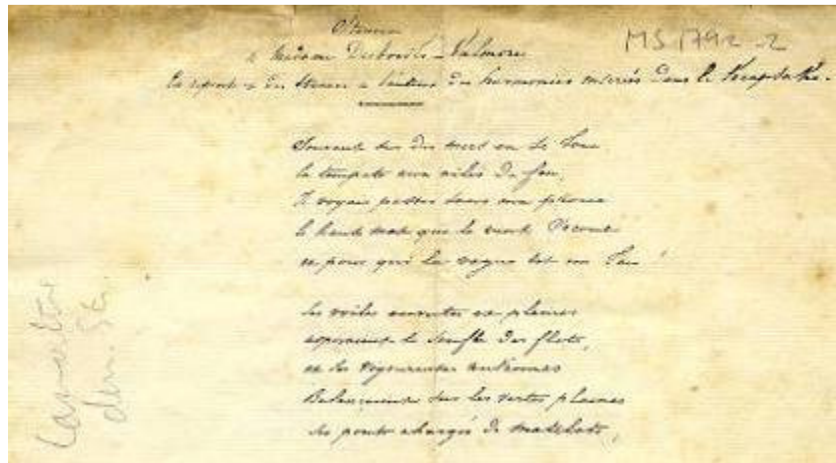 MS 1792-2
à Madame Desbordes-Valmore
En réponse à des stances à l'auteur des harmonies insérées dans le Keepsake.
Souvent sur des mers où se joue
la tempête aux ailes de feu,
Je voyais passer sous ma proue
le haut mât que le vent secoue
et pour qui la vague est un jeu !
Ses voiles ouvertes et pleines
aspiraient le souffle des flots,
et ses vigoureuses antennes
Balançaient sur les vertes plaines
ses ponts chargés de matelots,